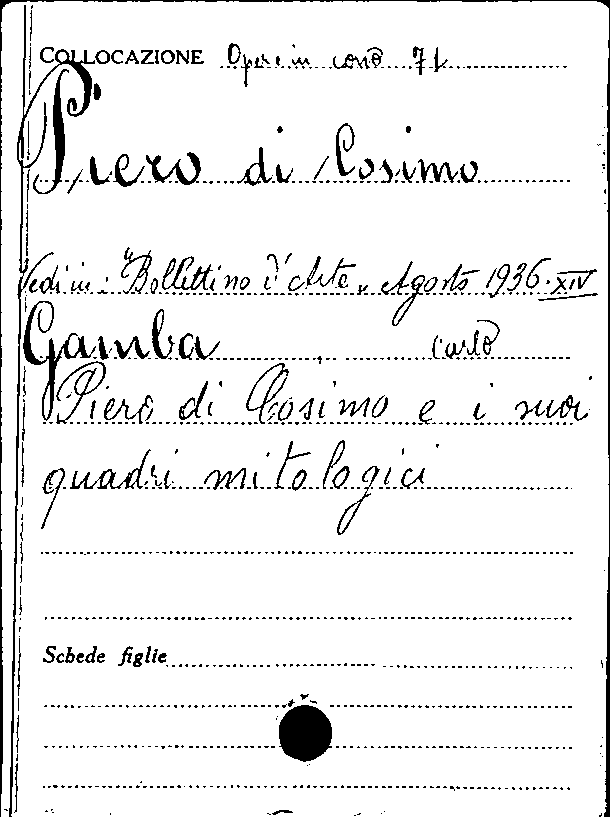 COLLOCAZIONE Opere in cons 71
Piero di Cosimo
Vedi in: "Bollettino d'Arte„ Agosto 1936·XIV
Gamba Carlo
Piero di Cosimo e i suoi
quadri mitologici
Schede figlie